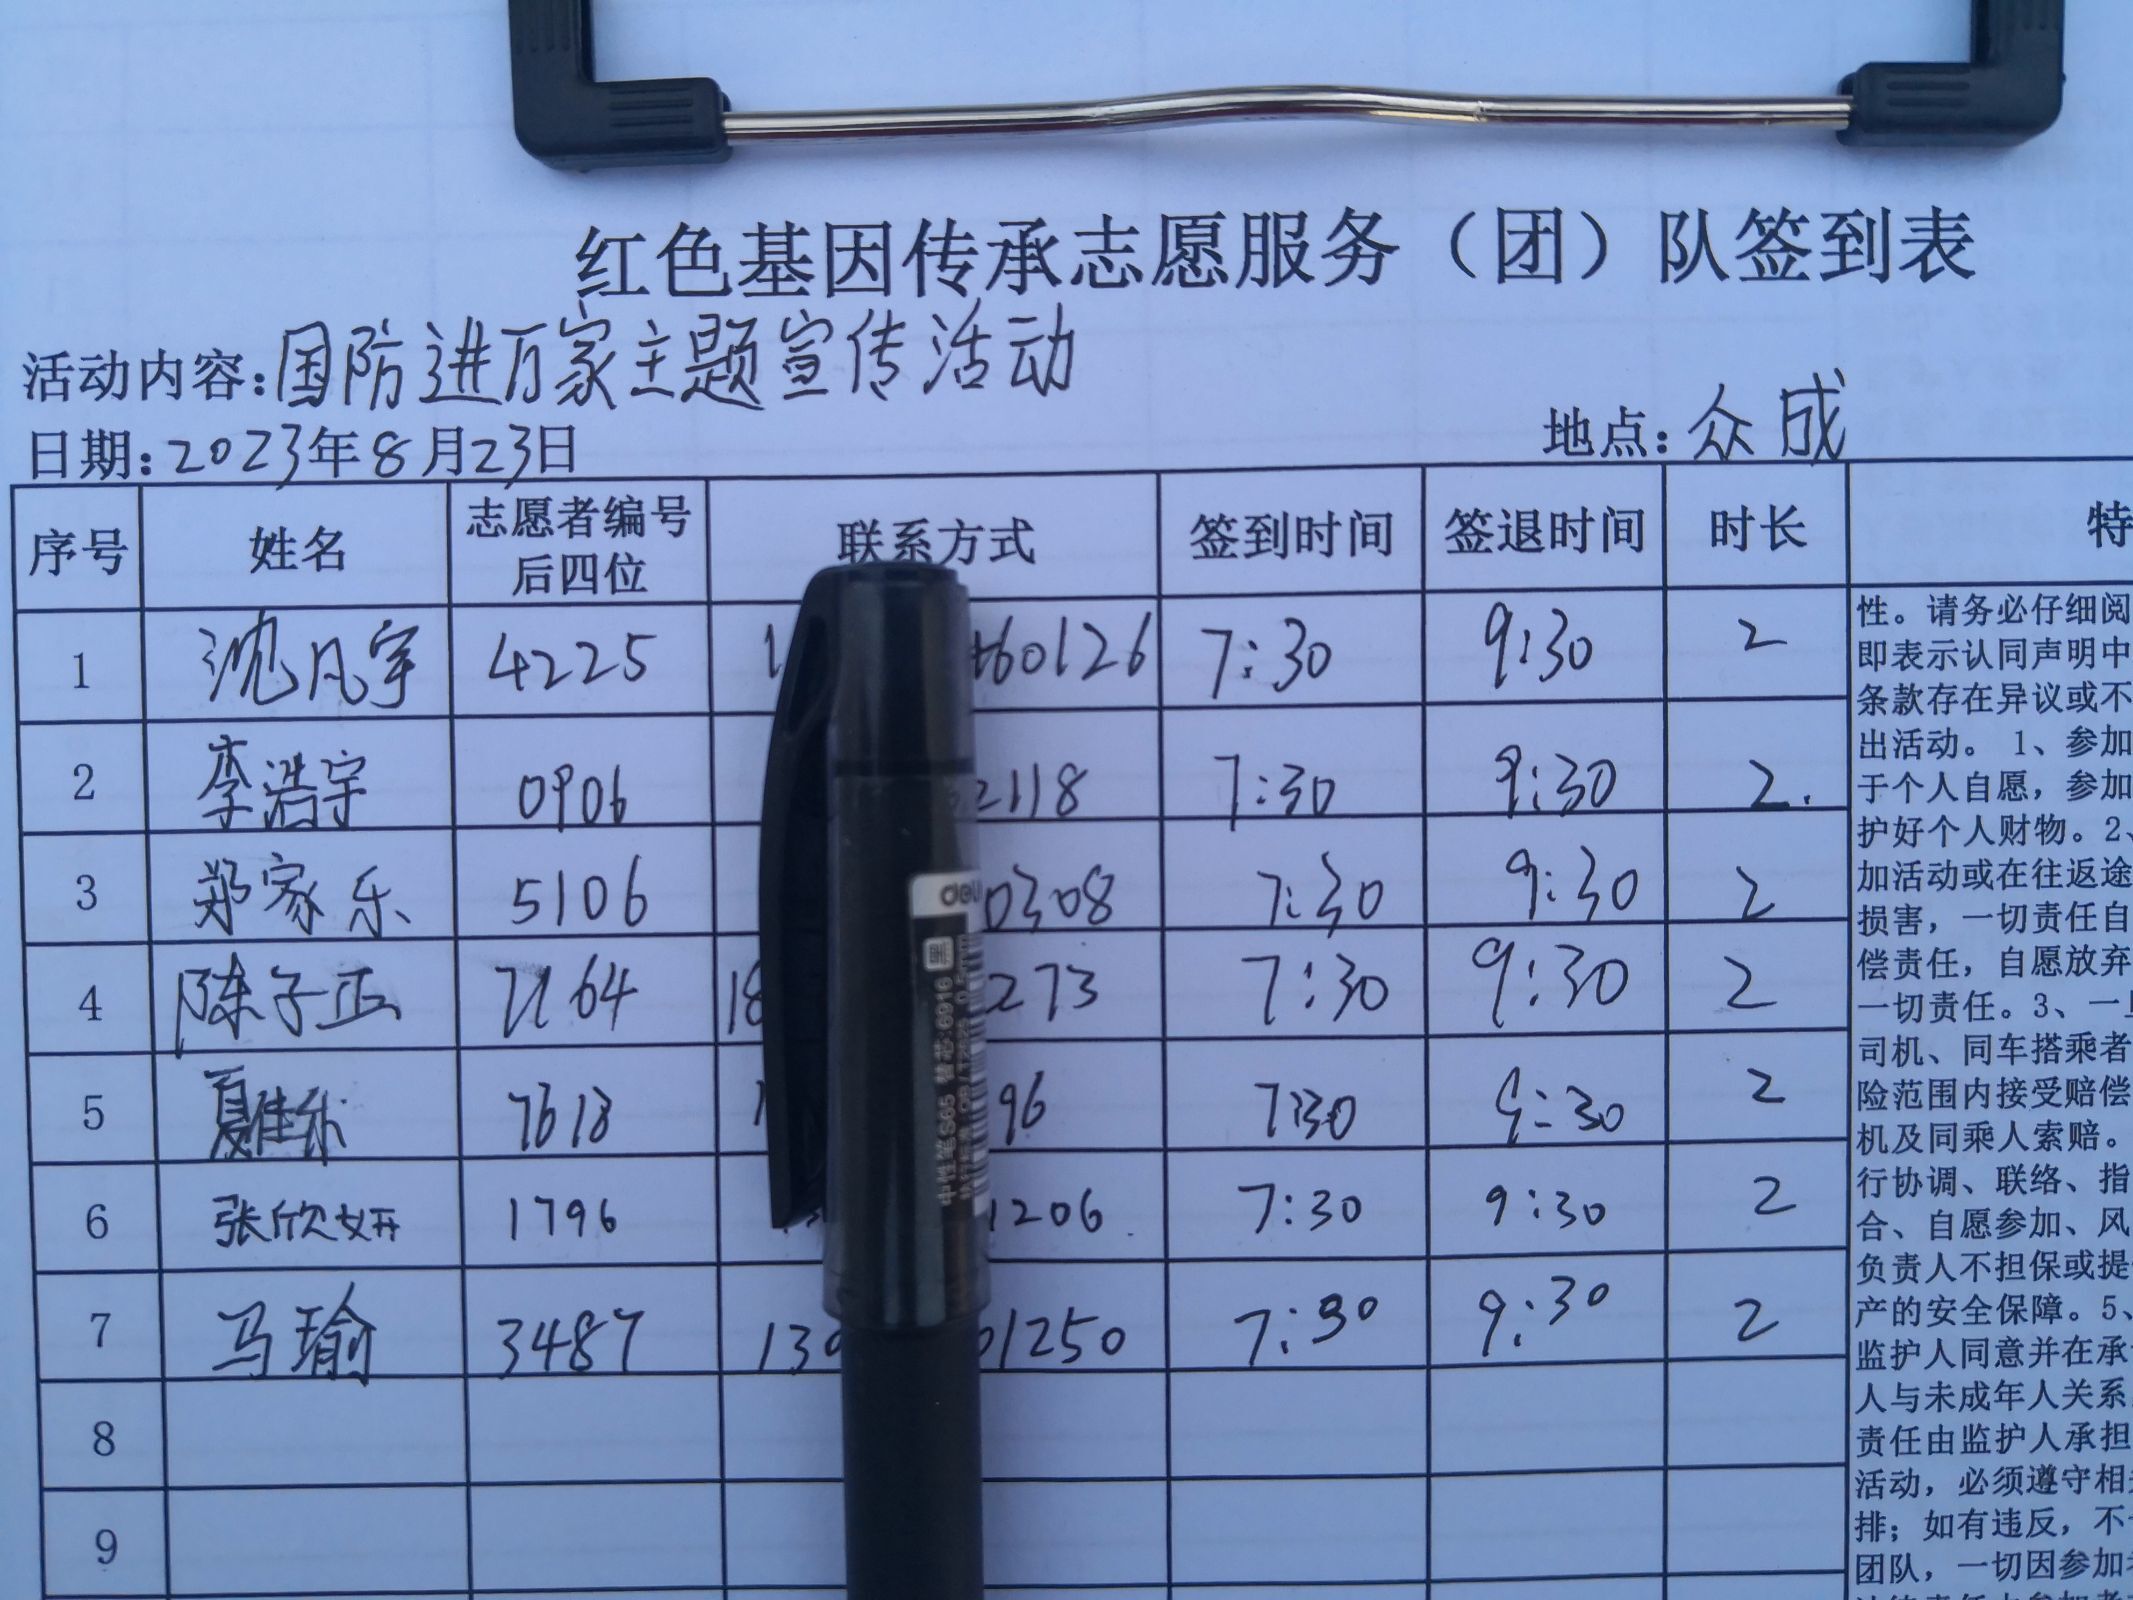 红色基因传承志愿服务（团）队签到表
活动内容：国防进万家主题宣传活动
日期：2023年8月23日 地点：众成
序号 姓名 志愿者编号后四位 联系方式 签到时间 签退时间 时长 特
1 沈凡宇 4225 1 460126 7:30 9:30 2
2 李浩宇 0906 2118 7:30 9:30 2.
3 郑家乐 5106 0308 7:30 9:30 2
4 陈子正 7164 18 273 7:30 9:30 2
5 夏佳乐 7618 1 96 7:30 9:30 2
6 张欣妍 1796 1206 7:30 9:30 2
7 马瑜 3487 130 01250 7:30 9:30 2
8
9
性。请务必仔细阅
即表示认同声明中
条款存在异议或不
出活动。 1、参加
于个人自愿，参加
护好个人财物。2、
加活动或在往返途
损害，一切责任自
偿责任，自愿放弃
一切责任。3、一旦
司机、同车搭乘者
险范围内接受赔偿
机及同乘人索赔。
行协调、联络、指
合、自愿参加、风
负责人不担保或提
产的安全保障。5、
监护人同意并在承
人与未成年人关系
责任由监护人承担
活动，必须遵守相
排；如有违反，不
团队，一切因参加
deli
黑
中性笔S65 替芯:6916